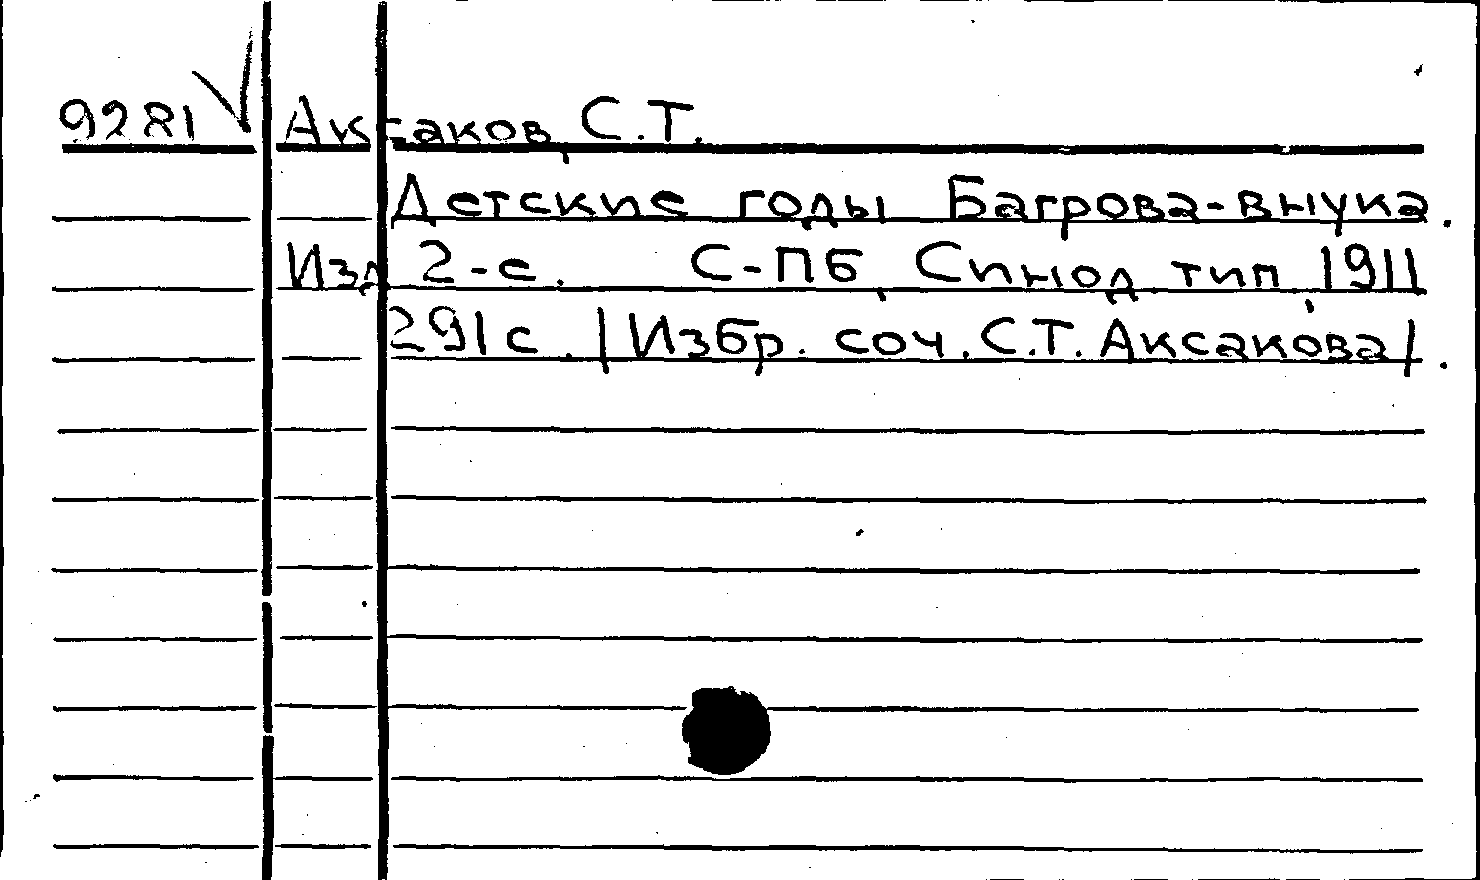 9281 √ Аксаков, С.Т.
Детские годы Багрова-внука.
Изд 2-е. С-ПБ, Синод. тип, 1911
291 с. /Избр. соч. С.Т. Аксакова/.